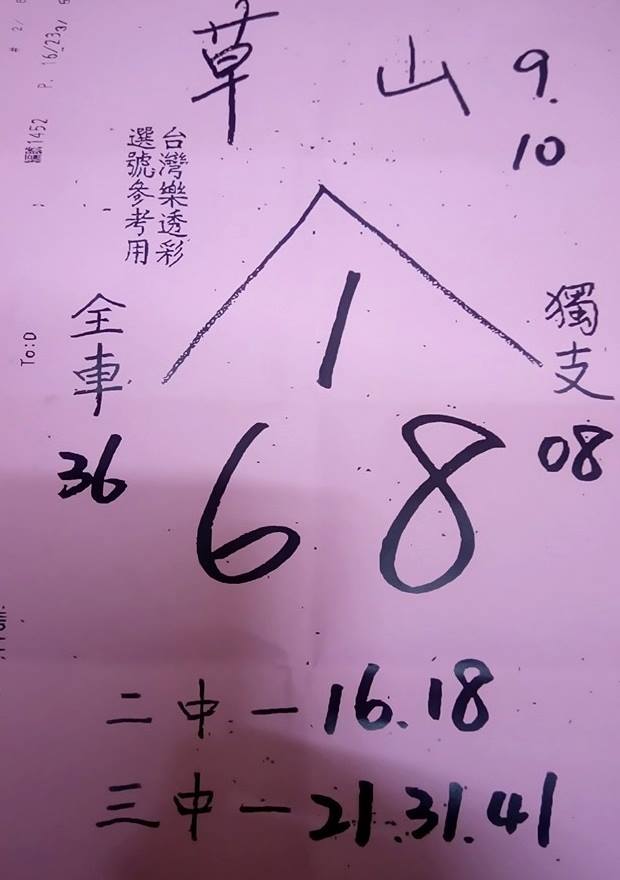 草山 9.
10
台灣樂透彩
選號參考用
全車
36
1
6 8
獨支
08
二中－16.18
三中－21.31.41
1452 P. 16/23
To:D